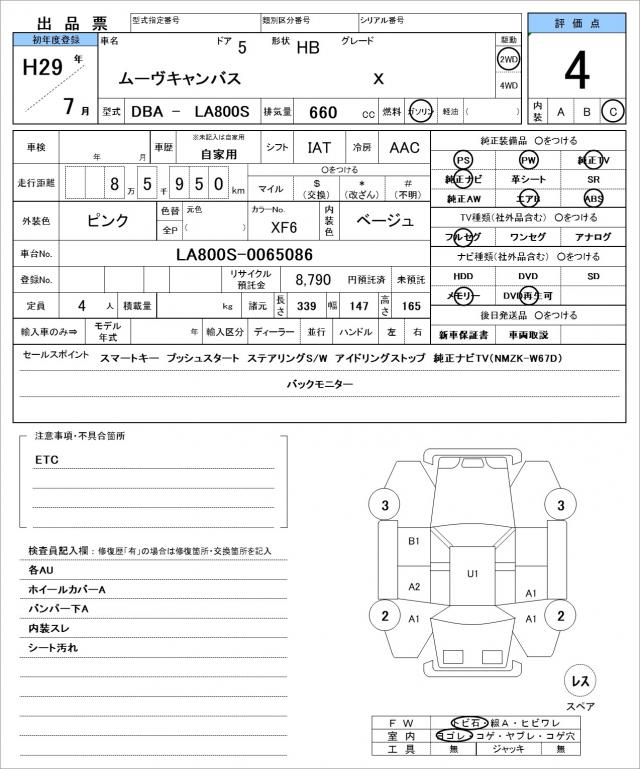 出品票 型式指定番号 類別区分番号 シリアル番号 評価点
初年度登録 車名 ドア 5 形状 HB グレード 駆動
H29 年 7 月 ムーヴキャンバス X 2WD 4WD 4
型式 DBA － LA800S 排気量 660 cc 燃料 ガソリン 軽油 ( ) 内装 A B C
車検 年 月 車歴 ※未記入は自家用 自家用 シフト IAT 冷房 AAC
走行距離 8 万 5 千 9 5 0 km 〇をつける マイル $ (交換) * (改ざん) # (不明)
外装色 ピンク 色替 全P 元色 ( ) カラーNo. XF6 内装色 ベージュ
車台No. LA800S-0065086
登録No. リサイクル預託金 8,790 円預託済 未預託
定員 4 人 積載量 kg 諸元 長さ 339 幅 147 高さ 165
輸入車のみ⇒ モデル年式 年 輸入区分 ディーラー 並行 ハンドル 左 右
純正装備品 〇をつける
PS PW 純正TV
純正ナビ 革シート SR
純正AW エアB ABS
TV種類(社外品含む) 〇をつける
フルセグ ワンセグ アナログ
ナビ種類(社外品含む) 〇をつける
HDD DVD SD
メモリー DVD再生可
後日発送品 〇をつける
新車保証書 車両取説
セールスポイント スマートキー プッシュスタート ステアリングS/W アイドリングストップ 純正ナビTV(NMZK-W67D)
バックモニター
注意事項・不具合箇所
ETC
検査員記入欄：修復歴「有」の場合は修復箇所・交換箇所を記入
各AU
ホイールカバーA
バンパー下A
内装スレ
シート汚れ
3 3
B1
U1
A2 A1
2 A1 A1 2
レス
スペア
FW トビ石・線A・ヒビワレ
室内 ヨゴレ・コゲ・ヤブレ・コゲ穴
工具 無 ジャッキ 無